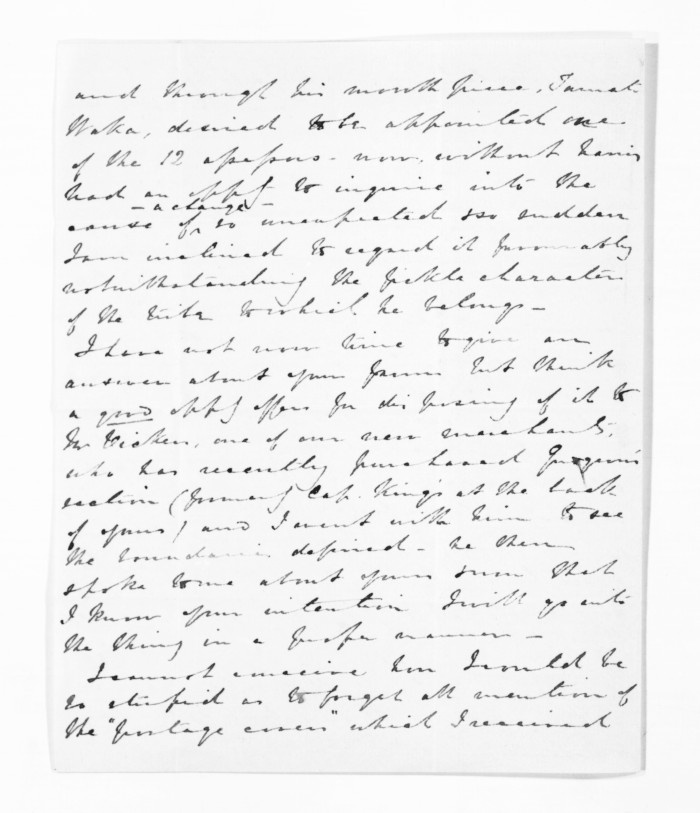 and through his mouth piece, Tamati
Waka, desired to be appointed one
of the 12 assessors - now, without having
had an oppy to inquire into the
- a change -
cause of, so unexpected & so sudden
I am inclined to regard it favourably
notwithstanding the fickle character
of the tribe to which he belongs -
I have not now time to give an
answer about your farm but think
a good oppy offers for disposing of it to
Mr one of our new merchants,
who has recently purchased
section (formerly Cap. King's at the back
of yours) and I went with him to see
the boundaries defined - he then
spoke to me about yours now that
I know your intention I will go into
the thing in a proper manner -
I cannot conceive how I could be
so stupid as to forget all mention of
the "postage covers" which I received